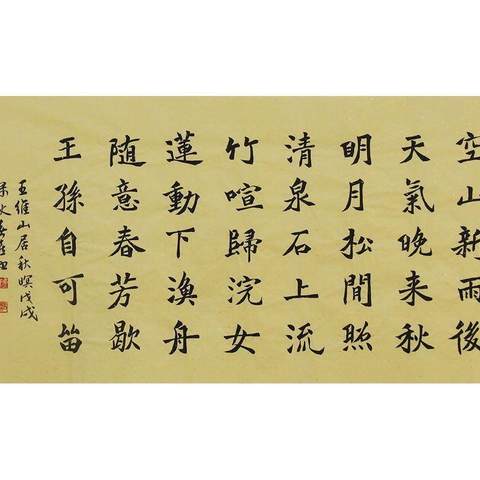 空山新雨後
天氣晚来秋
明月松間照
清泉石上流
竹喧歸浣女
蓮動下漁舟
随意春芳歇
王孫自可留
王維山居秋暝戊戌